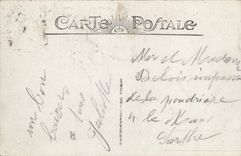 CARTE POSTALE
un bon
baiser
a tous
Juliette
Mr et Madame
Delois impasse
de la poudrière
4 le Mans
Sarthe